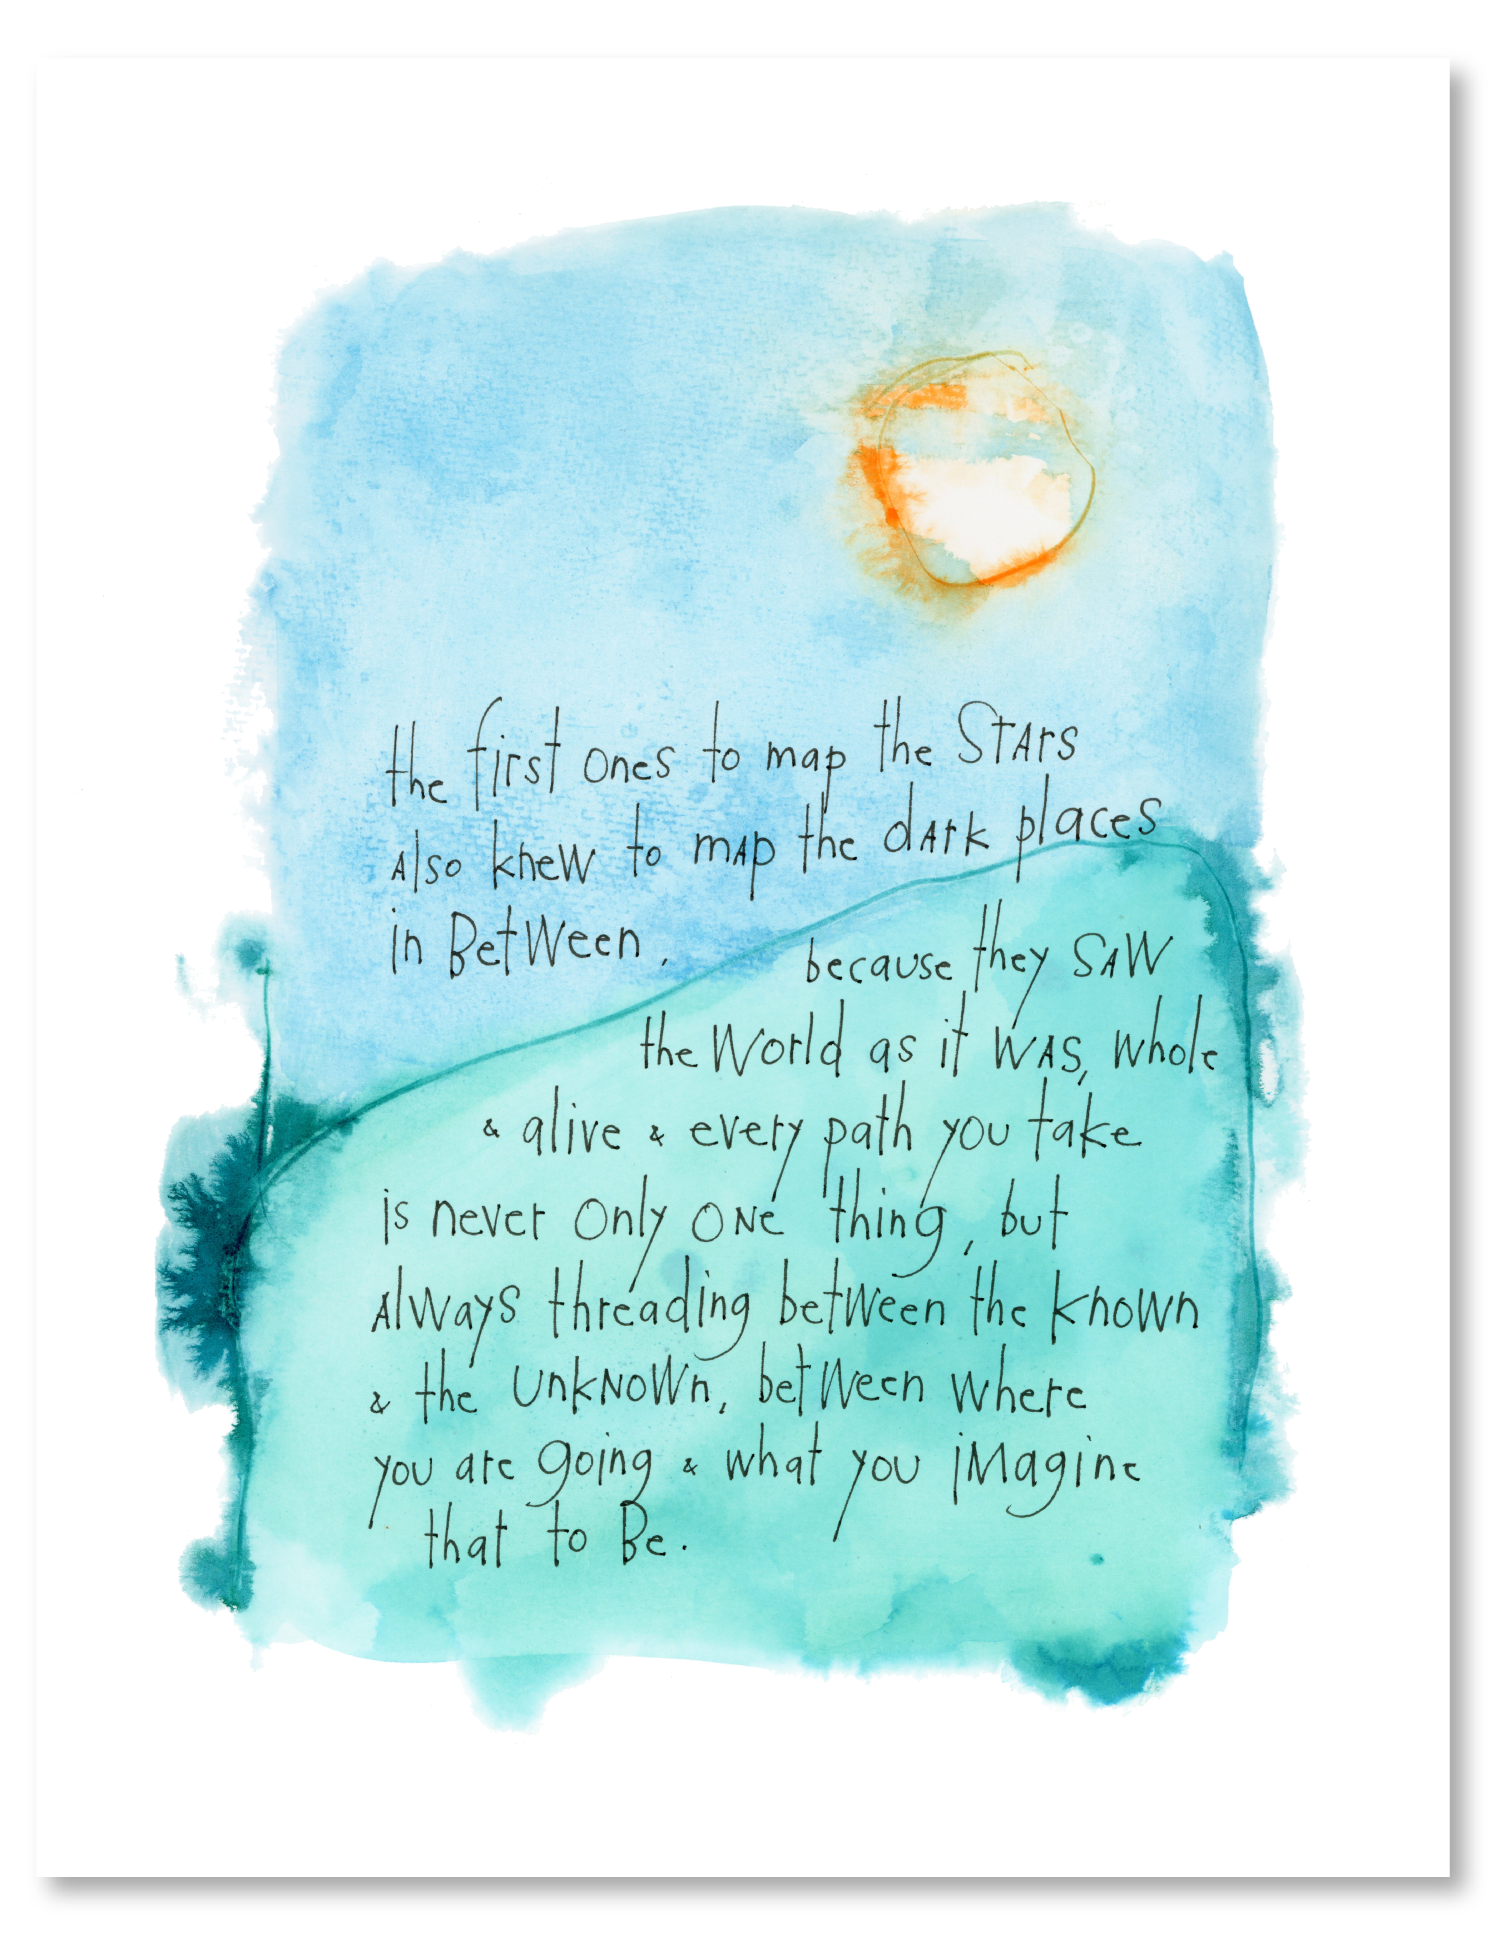 the first ones to map the STArs
Also knew to mAp the dArk places
in BetWeen,
because they SAW
the World as it WAS, whole
& alive & every path you take
is never only ONe thing, but
AlWays threading betWeen the knoWn
& the UnkNoWn, betWeen where
you are going & what you iMagine
that to Be.